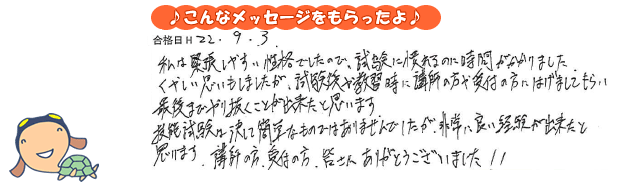 ♪こんなメッセージをもらったよ♪
合格日H22.9.3.
私は緊張しやすい性格でしたので、試験に慣れるのに時間がかかりました
くやしい思いもしましたが、試験後や教習時に講師の方や受付の方にはげましてもらい
最後までやり抜くことが出来たと思います
技能試験は決して簡単なものではありませんでしたが、非常に良い経験が出来たと
思います。講師の方、受付の方、皆さん ありがとうございました!!